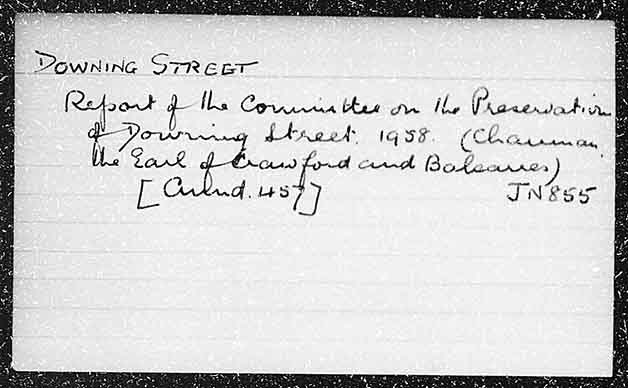 DOWNING STREET
Report of the Committee on the Preservation
of Downing Street. 1958. (Chairman.
the Earl of Crawford and Balcarres)
[Cmnd. 457] JN855